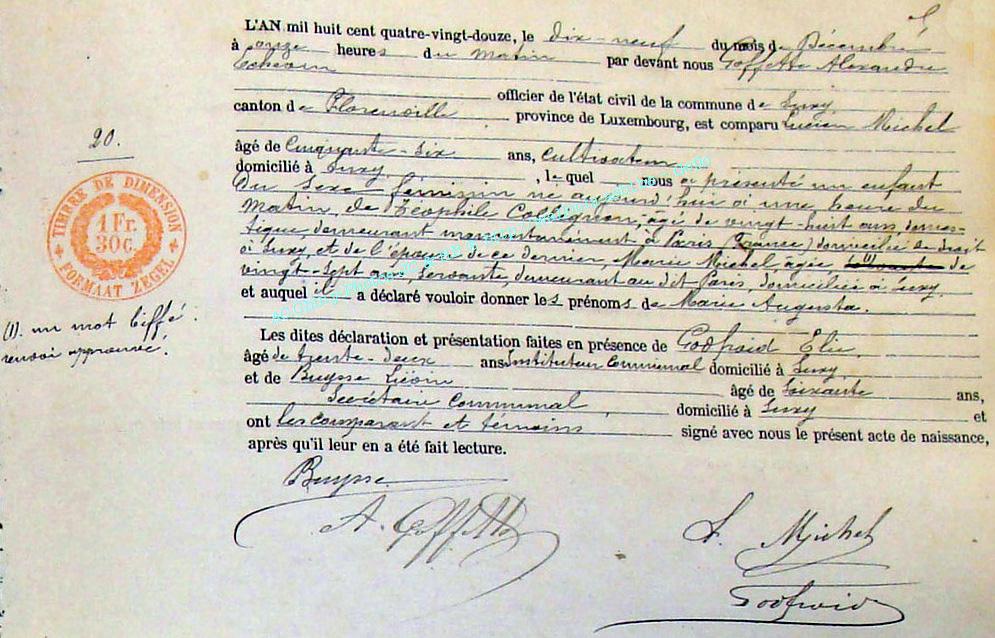 L'AN mil huit cent quatre-vingt-douze, le dix-neuf du mois de Décembre
à onze heures du matin par devant nous Goffette Alexandre
Echevin
officier de l'état civil de la commune de Suxy
canton de Florenville province de Luxembourg, est comparu Lucien Michel
âgé de Cinquante-six ans, cultivateur
domicilié à Suxy, lequel nous a présenté un enfant
du sexe féminin né aujourd'hui à une heure du
matin, de Théophile Collignon, âgé de vingt-huit ans, domes-
tique, demeurant momentanément à Paris (France) domicilié de droit
à Suxy, et de l'épouse de ce dernier, Marie Michel, âgée (1) de
vingt-sept ans, servante, demeurant au dit Paris, domiciliée à Suxy,
et auquel il a déclaré vouloir donner les prénoms de Marie Augusta.
Les dites déclaration et présentation faites en présence de Godfroid Elie,
âgé de trente-deux ans Instituteur Communal domicilié à Suxy,
et de Buysse Liévin âgé de Soixante ans,
Secrétaire Communal, domicilié à Suxy et
ont les comparant et témoins signé avec nous le présent acte de naissance,
après qu'il leur en a été fait lecture.
Buysse
A. Goffette
L. Michel
Godfroid
20.
TIMBRE DE DIMENSION
1 Fr.
30C.
FORMAAT ZEGEL
(1). un mot biffé.
renvoi approuvé.